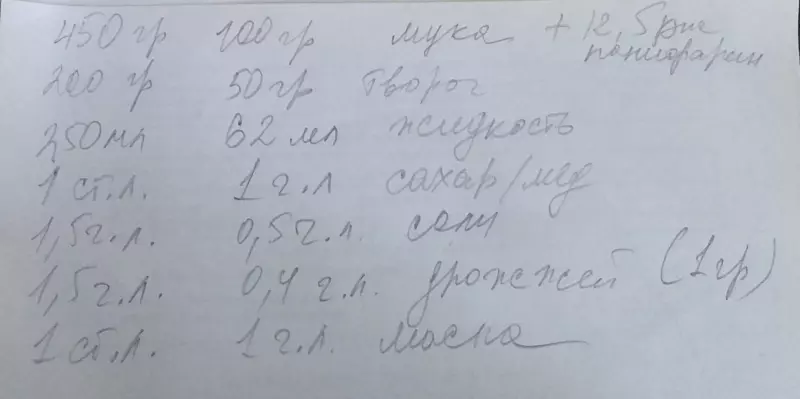 450 гр 100 гр мука + 12,5 рис
панифарин
200 гр 50 гр творог
250 мл 62 мл жидкость
1 ст.л. 1 ч.л сахар/мёд
1,5 ч.л. 0,5 ч.л. соли
1,5 ч.л. 0,4 ч.л. дрожжей (1 гр)
1 ст.л. 1 ч.л. масла